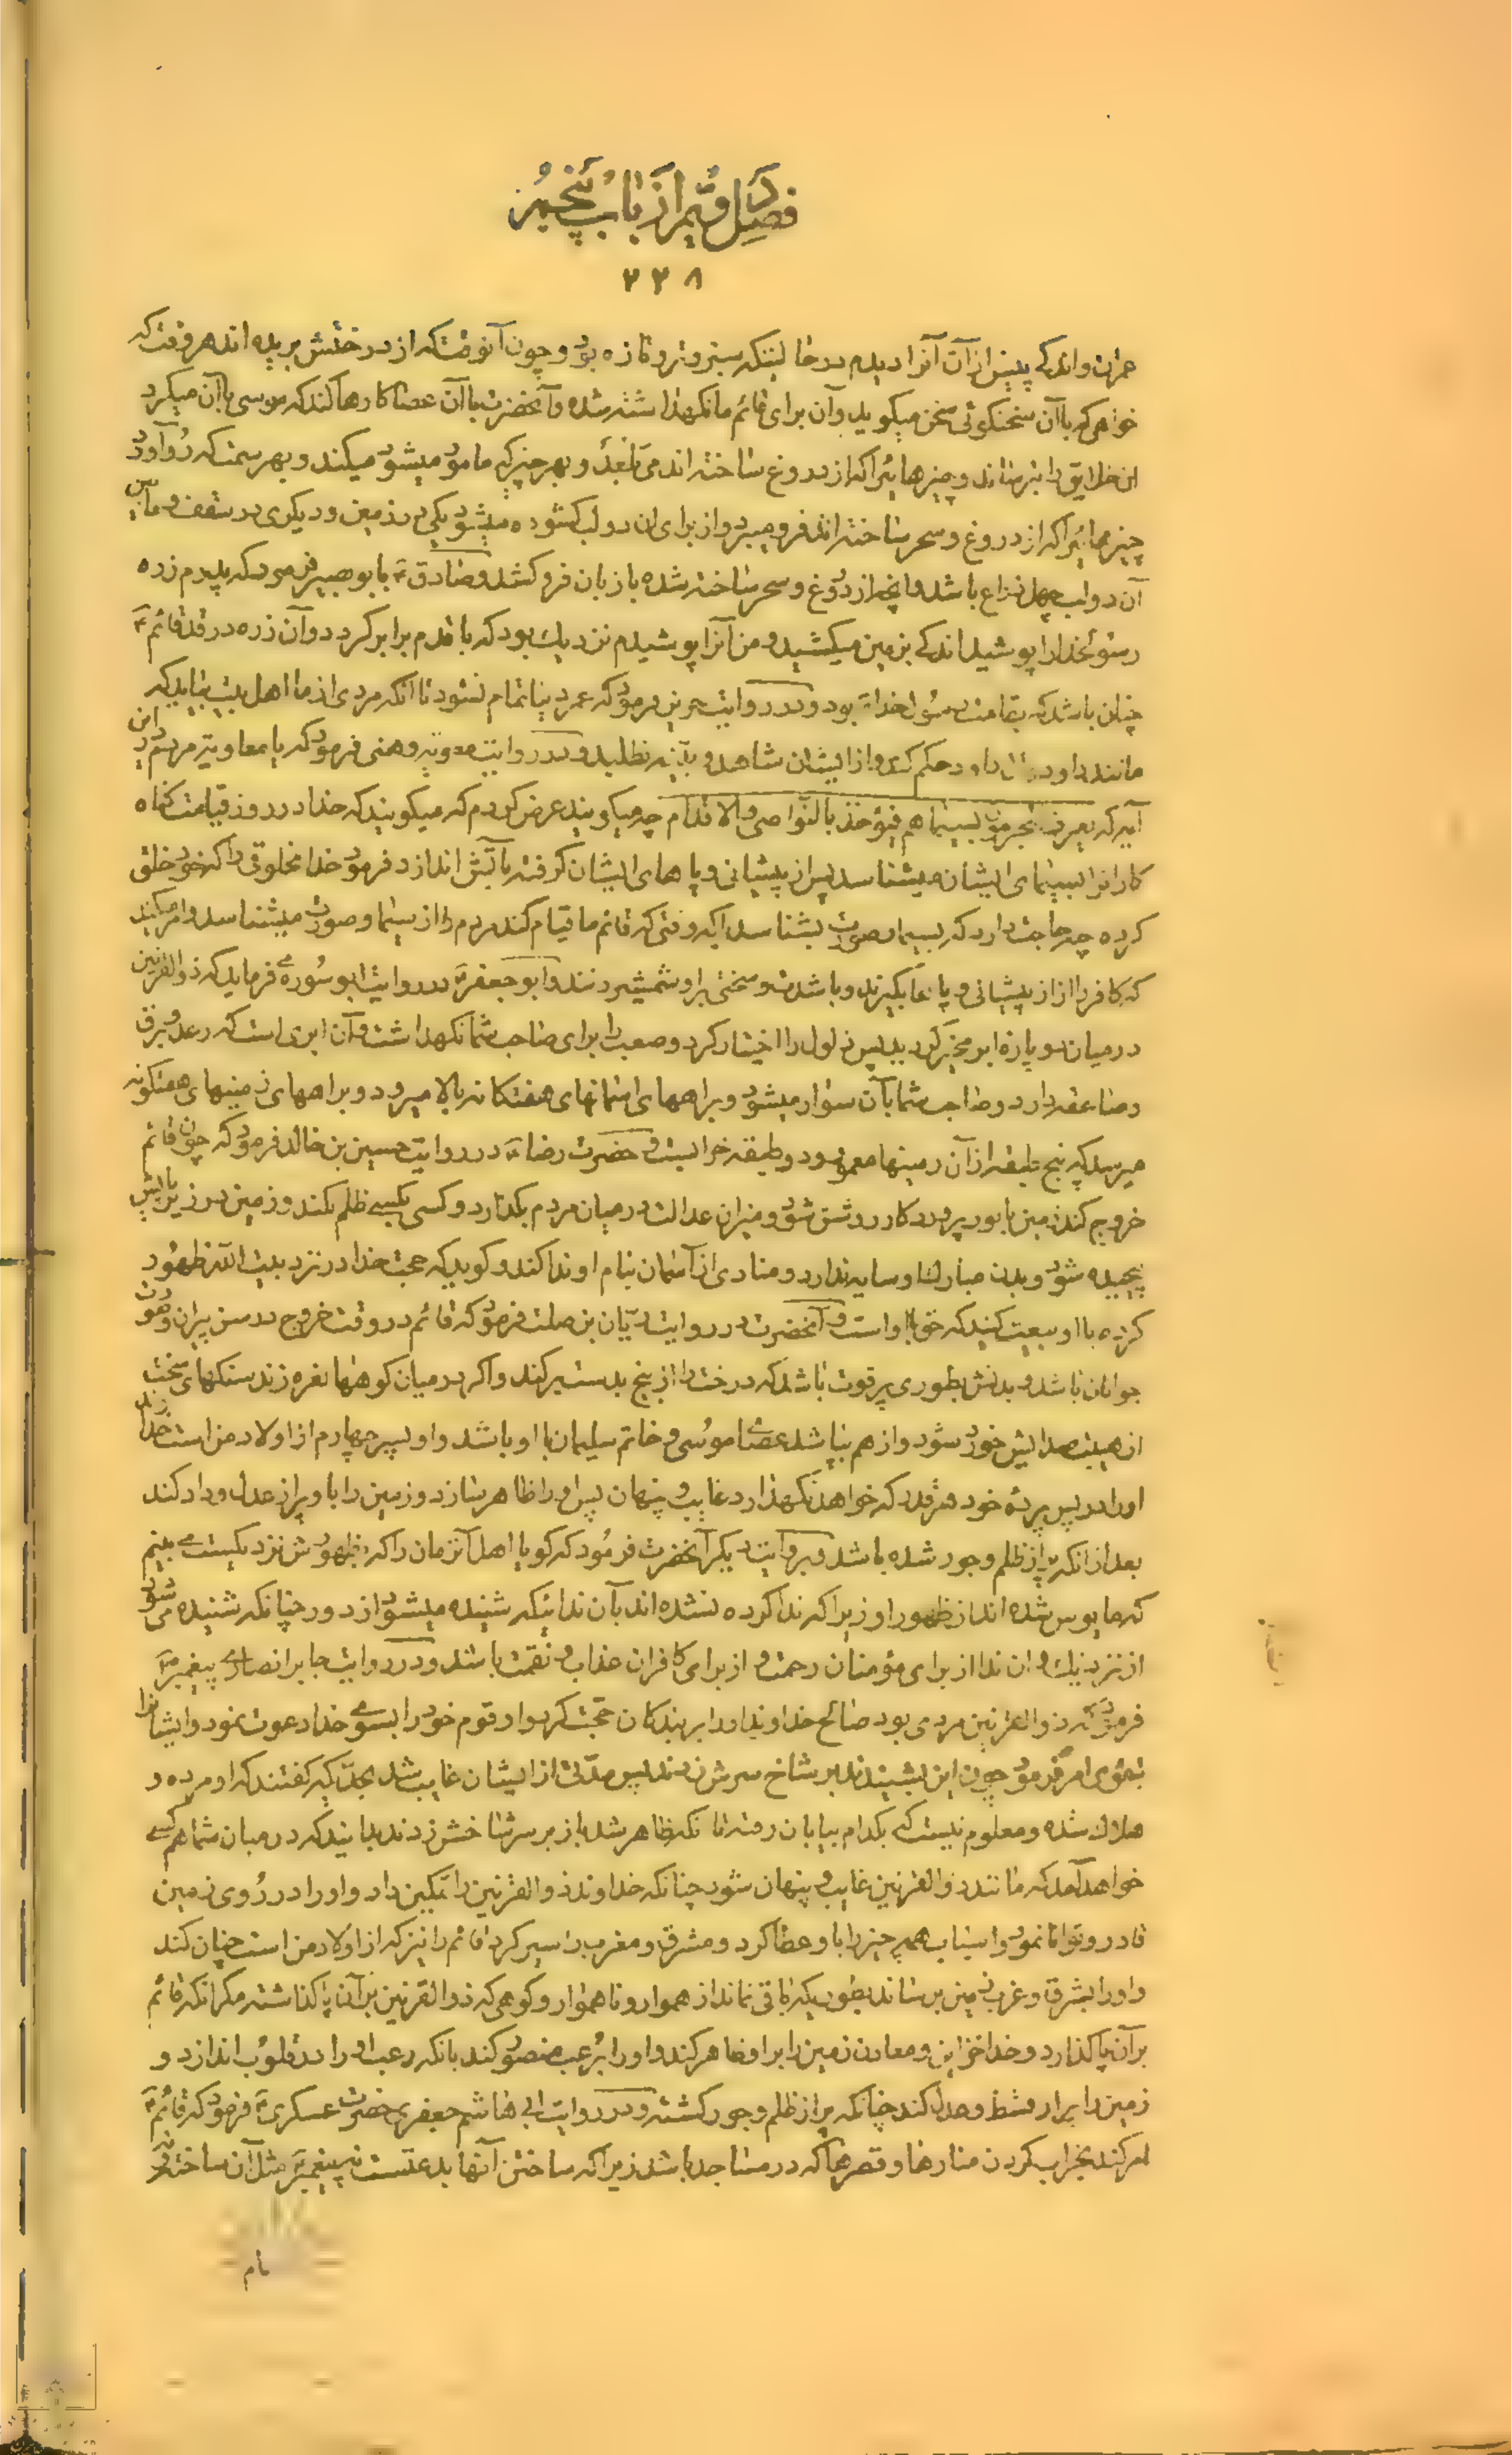 فصل دویم از باب پنجم
۲۲۸
عمران و اندکی پیش از آن آنرا دیدم در حالیتکه سبز و تر و تازه بود و چون آنوقت که از درختش بریده اند هر وقت که
خواهی که با آن سخنگوئی سخن میگوید و آن برای قائم ما نگهداشته شده و آنحضرت با آن عصا کارها کند که موسی با آن میکرد
ان خلایق را بترساند و چیزهائیرا که از دروغ ساخته اند می بلعد و بهر چیز که مامور میشود میکند و بهر سمت که رو آورد
چیزهائیرا که از دروغ و سحر ساخته اند فرو میبرد و از برای ان دو لب گشوده میشود یکی در زمین و دیگری در سقف و مابین
آن دو لب چهل ذراع باشد و آنچه از دروغ و سحر ساخته شده با زبان فرو کشد و صادق ع با ابو بصیر فرمود که پدرم زره
رسولخدا را پوشید اندکی بزمین میکشید و من آنرا پوشیدم نزدیک بود که با قدم برابر گردد و آن زره در قد قائم ع
چنان باشد که بقامت رسول خدا بود و در روایت حریز فرمود که عمر دنیا تمام نشود تا آنکه مردی از ما اهل بیت بیاید که
مانند داود و آل داود حکم کند و از ایشان شاهد و بینه نطلبد و در روایت معویه دهنی فرمود که یا معاویه مردم در این
آیه که یعرف المجرمون بسیماهم فیؤخذ بالنواصی و الاقدام چه میگویند عرض کردم که میگویند که خدا در روز قیامت گناه
کارانرا بسیمای ایشان میشناسد پس از پیشانی و پاهای ایشان گرفته بآتش اندازد فرمود خدا مخلوقی را که خود خلق
کرده چه حاجت دارد که بسیما و صورت بشناسد بلکه وقتی که قائم ما قیام کند مردم را از سیما و صورت میشناسد و امر میکند
که کافر را از پیشانی و پاها بگیرند و با شدت و سختی بر او شمشیر زنند و ابو جعفر ع در روایت ابو سوره می فرماید که ذو القرنین
در میان دو پاره ابر مخیر گردید پس ذلول را اختیار کرد و صعب را برای صاحب شما نگهداشت و آن ابری است که رعد و برق
و صاعقه دارد و صاحب شما بآن سوار میشود و براههای آسمانهای هفتگانه بالا میرود و براههای زمینهای هفتگونه
میرسد که پنج طبقه از آن زمینها معمور و دو طبقه خرابست و حضرت رضا ع در روایت حسین بن خالد فرمود که چون قائم
خروج کند زمین با نور پروردگار روشن شود و میزان عدالت در میان مردم بگذارد و کسی بکسی ظلم نکند و زمین در زیر پایش
پیچیده شود و بدن مبارک او سایه ندارد و منادی از آسمان بنام او ندا کند و گوید که حجت خدا در نزد بیت الله ظهور
کرده با او بیعت کنید که حق با او است و آنحضرت در روایت ریان بن صلت فرمود که قائم در وقت خروج در سن پیران و صورت
جوانان باشد و بدنش بطوری پر قوت باشد که درخت را از بیخ بدست بر کند و اگر در میان کوهها نعره زند سنگهای سخت
از هیبت صدایش خورد شود و از هم بپاشد عصای موسی و خاتم سلیمان با او باشد و او پسر چهارم از اولاد من است خدا
او را در پس پرده خود هر قدر که خواهد نگهدارد غایب و پنهان پس او را ظاهر سازد و زمین را با او پر از عدل و داد کند
بعد از آنکه پر از ظلم و جور شده باشد و بروایت دیگر آنحضرت فرمود که گویا اهل آنزمان را که ظهورش نزدیکست می بینم
که مایوس شده اند از ظهور او زیرا که ندا کرده شده اند بآن ندائیکه شنیده میشود از دور چنانکه شنیده می شود
از نزدیک و ان ندا از برای مؤمنان رحمت و از برای کافران عذاب و نقمت باشد و در روایت جابر انصاری پیغمبر ص
فرمود که ذو القرنین مردی بود صالح خداوند او را بر بندگان حجت کرد و او قوم خود را بسوی خدا دعوت نمود و ایشانرا
بتقوی امر فرمود چون این بشنیدند بر شاخ سرش زدند پس مدتی از ایشان غایب شد بحدیکه گفتند که او مرده و
هلاک شده و معلوم نیست که بکدام بیابان رفته تا آنکه ظاهر شد باز بر سر شاخش زدند بدانید که در میان شما هم کسی
خواهد آمد که مانند ذو القرنین غایب و پنهان شود چنانکه خداوند ذو القرنین را تمکین داد و او را در روی زمین
قادر و توانا نمود و اسباب همه چیز را با و عطا کرد و مشرق و مغرب را سیر کرد قائم را نیز که از اولاد من است چنان کند
و او را بشرق و غرب زمین برساند بطوریکه باقی نماند از هموار و ناهموار و کوهی که ذو القرنین بر آن پا گذاشته مگر آنکه قائم
بر آن پا گذارد و خدا خزاین و معادن زمین را بر او ظاهر کند و او را برعب منصور کند بآنکه رعب او را در قلوب اندازد و
زمین را پر از قسط و عدل کند چنانکه پر از ظلم و جور گشته و در روایت ابی هاشم جعفری حضرت عسکری ع فرمود که قائم ع
امر کند بخراب کردن منارها و قصرها که در مساجد باشد زیرا که ساختن آنها بدعتست نه پیغمبر مثل آن ساخته نه